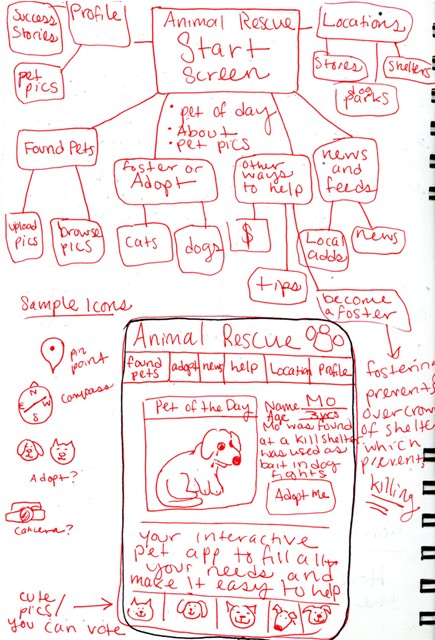 Success
Stories
Profile
pet
pics
Animal Rescue
Start
Screen
Locations
Stores
Shelters
dog
parks
• pet of day
• About
• pet pics
Found Pets
upload
pics
browse
pics
foster or
Adopt
cats
dogs
other
ways
to help
$
tips
news
and
feeds
Local
adds
news
become
a foster
fostering
prevents
overcrow
of shelter
which
prevents
killing
Sample Icons
pin
point
N
E
W
S
compass
Adopt?
camera?
cute
pics/
you can vote
Animal Rescue
found
pets
adopt
news
help
Location
Profile
Pet of the Day
Name Mo
Age 3 yrs
Mo was found
at a kill shelter
was used as
bait in dog
fights
Adopt me
your interactive
pet app to fill all
your needs and
make it easy to help